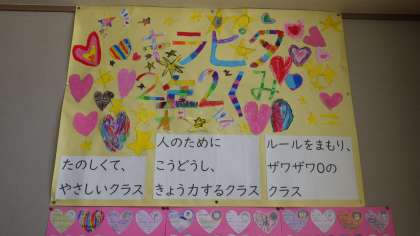 キラピタ
2年2くみ
たのしくて、
やさしいクラス
人のために
こうどうし、
きょう力するクラス
ルールをまもり、
ザワザワ0の
クラス